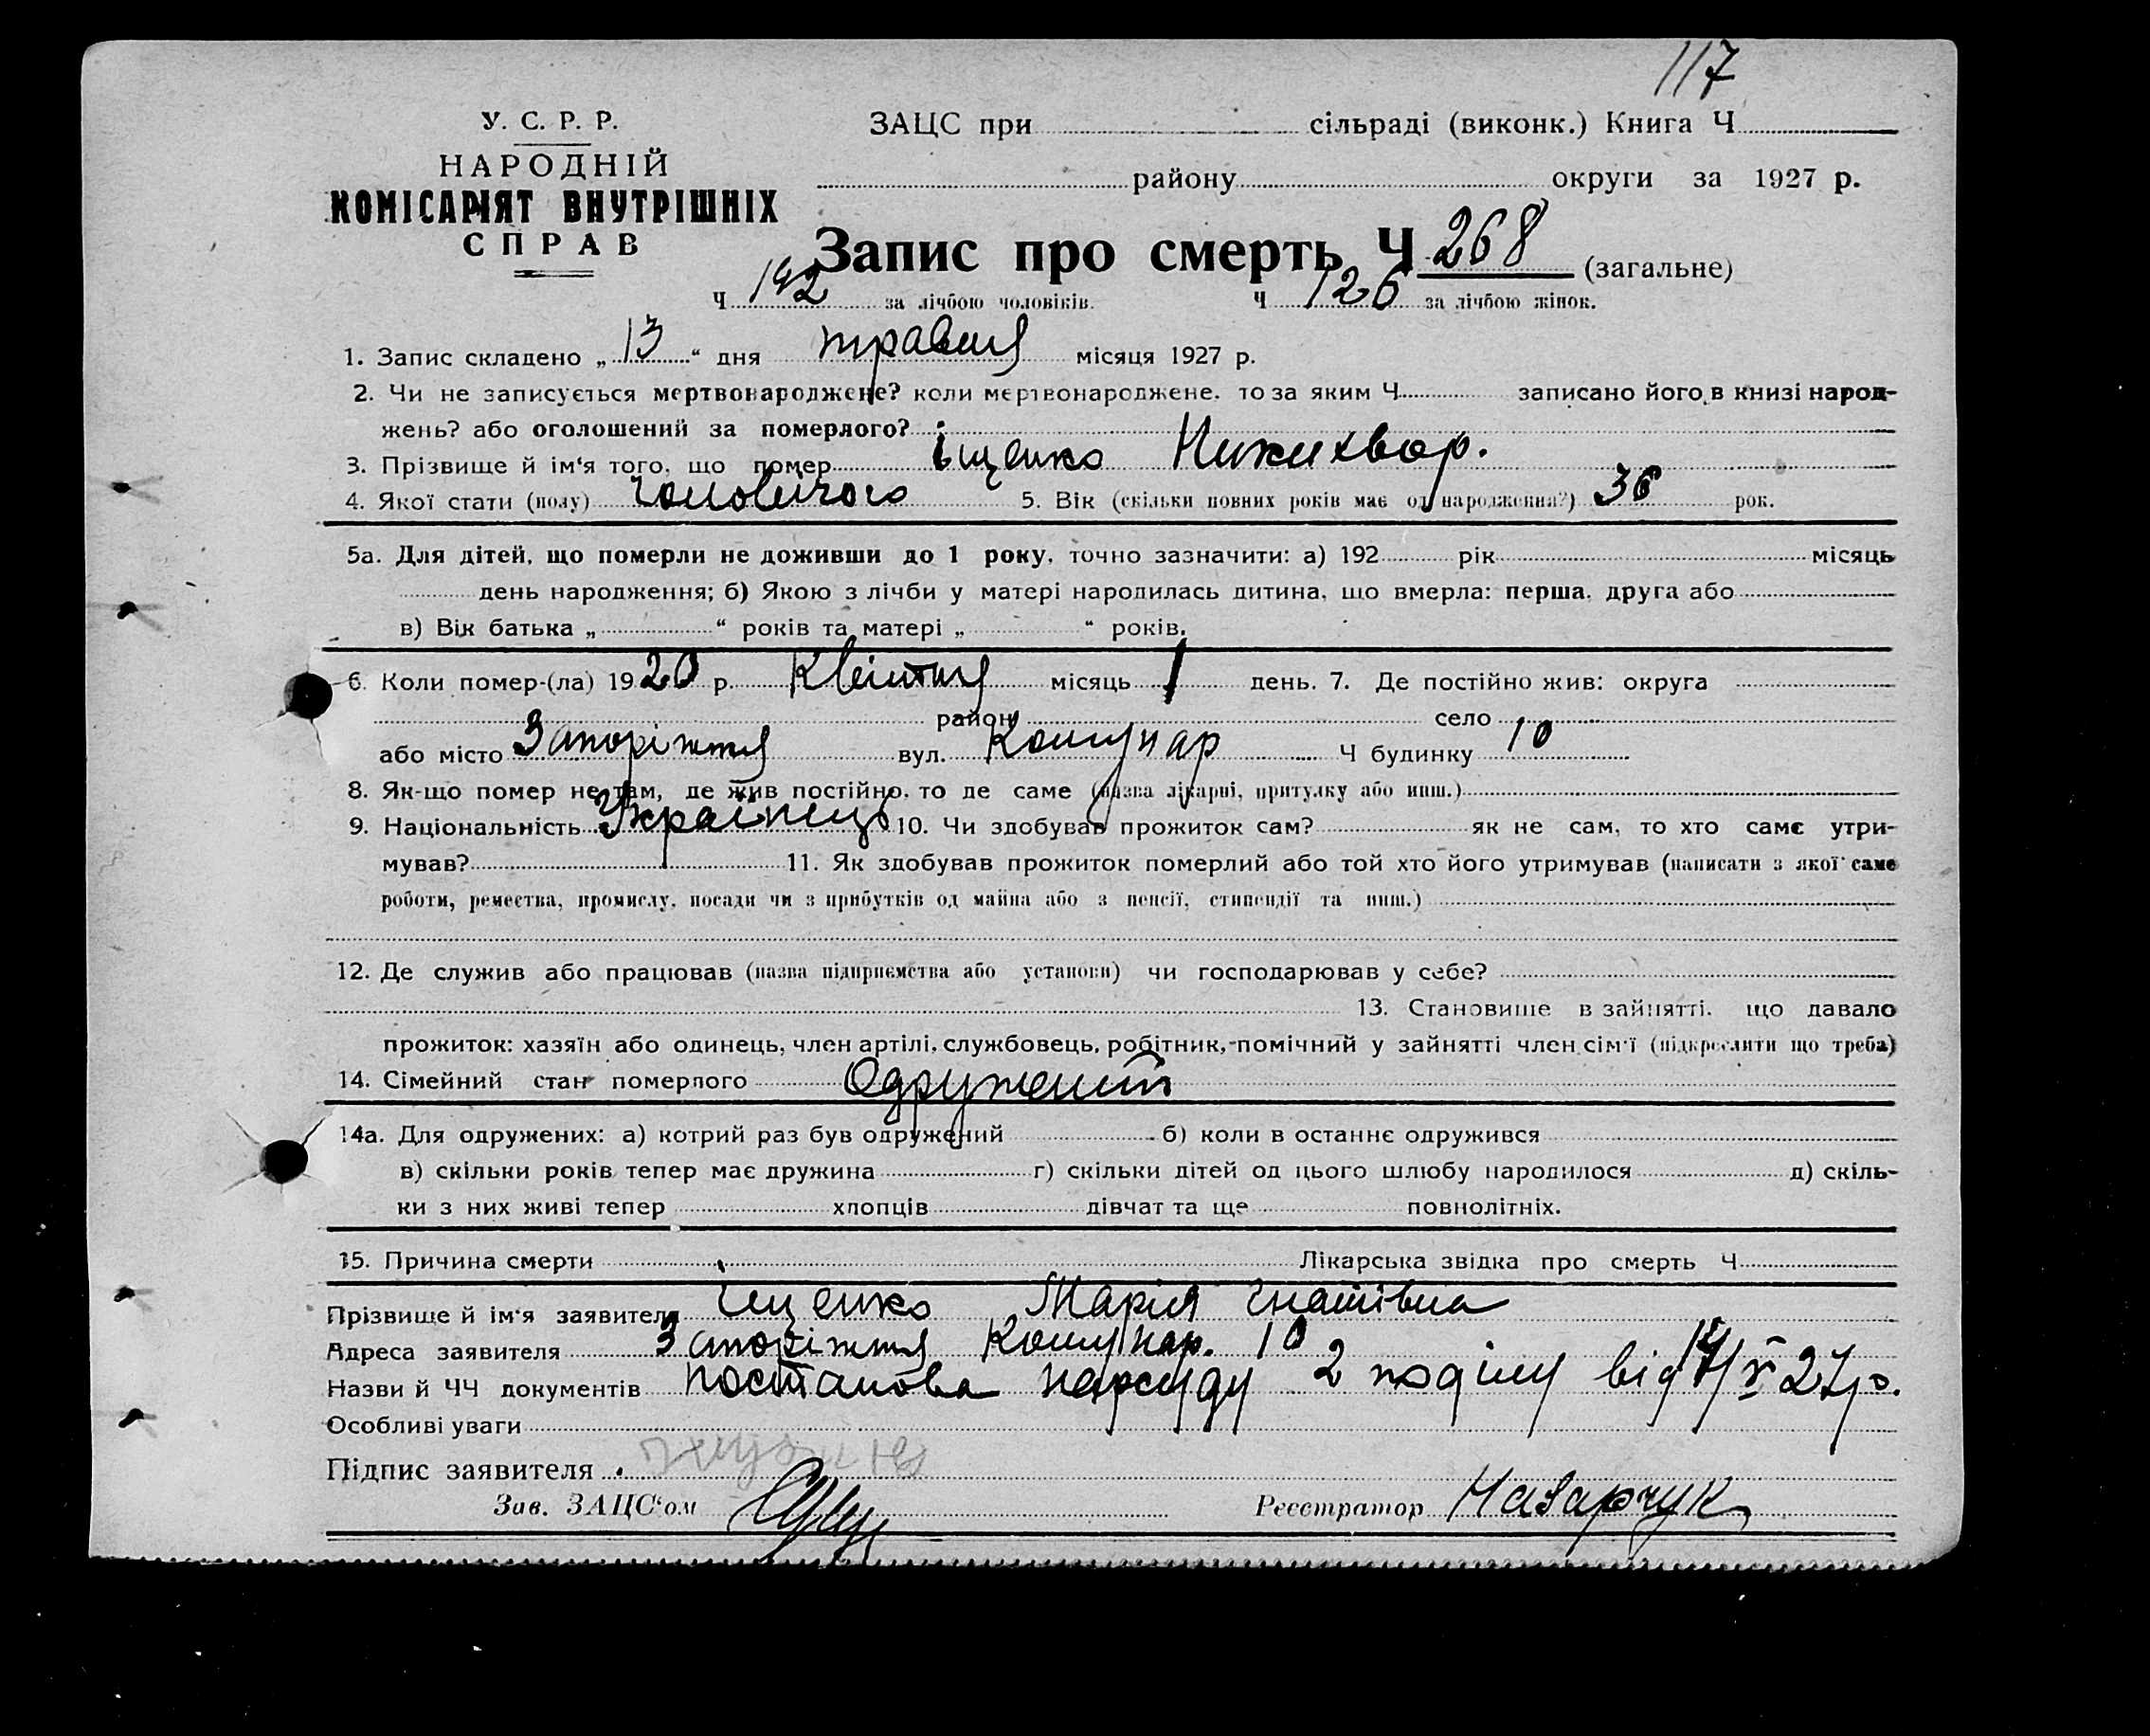 117
У. С. Р. Р.
НАРОДНІЙ
КОМІСАРІЯТ ВНУТРІШНІХ
СПРАВ
ЗАЦС при сільраді (виконк.) Книга Ч
району округи за 1927 р.
Запис про смерть Ч 268 (загальне)
Ч 142 за лічбою чоловіків. Ч 126 за лічбою жінок.
1. Запис складено „ 13 “ дня травня місяця 1927 р.
2. Чи не записується мертвонароджене? коли мертвонароджене. то за яким Ч записано його в книзі народ-
жень? або оголошений за померлого?
3. Прізвище й ім‘я того, що помер Іщенко Никихвор.
4. Якої стати (полу) чоловічого 5. Вік (скільки повних років має од народження?) 36 рок.
5а. Для дітей, що померли не доживши до 1 року, точно зазначити: а) 192 рік місяць
день народження; б) Якою з лічби у матері народилась дитина, що вмерла: перша, друга або
в) Вік батька „ “ років та матері „ “ років.
6. Коли помер-(ла) 1920 р. Квітня місяць 1 день. 7. Де постійно жив: округа
район село
або місто Запоріжжя вул. Комунар Ч будинку 10
8. Як-що помер не там, де жив постійно, то де саме (назва лікарні, притулку або инш.)
9. Національність Українець 10. Чи здобував прожиток сам? як не сам, то хто саме утри-
мував? 11. Як здобував прожиток померлий або той хто його утримував (написати з якої саме
роботи, ремества, промислу, посади чи з прибутків од майна або з пенсії, стипендії та инш.)
12. Де служив або працював (назва підприємства або установи) чи господарював у себе?
13. Становище в зайнятті. що давало
прожиток: хазяїн або одинець, член артілі, службовець, робітник, помічний у зайнятті член сім‘ї (підкреслити що треба)
14. Сімейний стан померлого Одружений
14а. Для одружених: а) котрий раз був одружений б) коли в останнє одружився
в) скільки років тепер має дружина г) скільки дітей од цього шлюбу народилося д) скіль-
ки з них живі тепер хлопців дівчат та ще повнолітніх.
15. Причина смерти Лікарська звідка про смерть Ч
Прізвище й ім‘я заявителя Іщенко Марія Гнатівна
Адреса заявителя Запоріжжя Комунар. 10
Назви й ЧЧ документів постанова нарсуду 2 поділу від /V 27 р.
Особливі уваги
Підпис заявителя
Зав. ЗАЦС‘ом
Реєстратор Назарчук